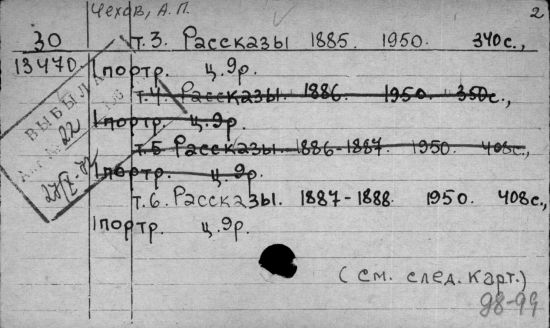 Чехов, А.П. 2
30 т.3. Рассказы 1885. 1950. 340с.,
13470 1портр. ц.9р.
т.4. Рассказы. 1886. 1950. 350с.,
1портр. ц.9р.
т.5 Рассказы. 1886-1887. 1950. 408с.,
1портр. ц.9р.
т.6. Рассказы. 1887-1888. 1950. 408с.,
1портр. ц.9р.
(см. след. карт.)
98-99
ВЫБЫЛА
Акт № 22